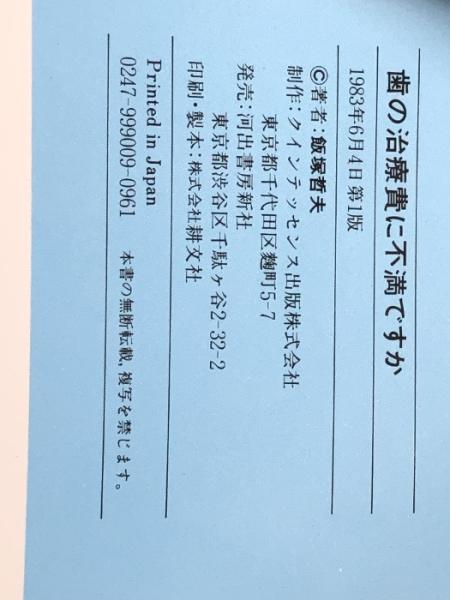 歯の治療費に不満ですか
1983年6月4日第1版
©著者：飯塚哲夫
制作：クインテッセンス出版株式会社
東京都千代田区麴町5-7
発売：河出書房新社
東京都渋谷区千駄ヶ谷2-32-2
印刷・製本：株式会社耕文社
Printed in Japan
0247-999009-0961　本書の無断転載，複写を禁じます。